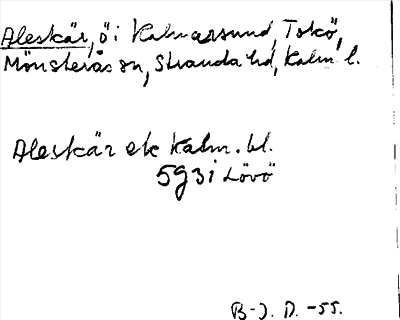 Aleskär, ö i Kalmarsund, Tokö,
Mönsterås sn, Stranda hd, Kalm. l.
Aleskär ek Kalm. bl.
5g3i Lövö
B-J. D. -55.